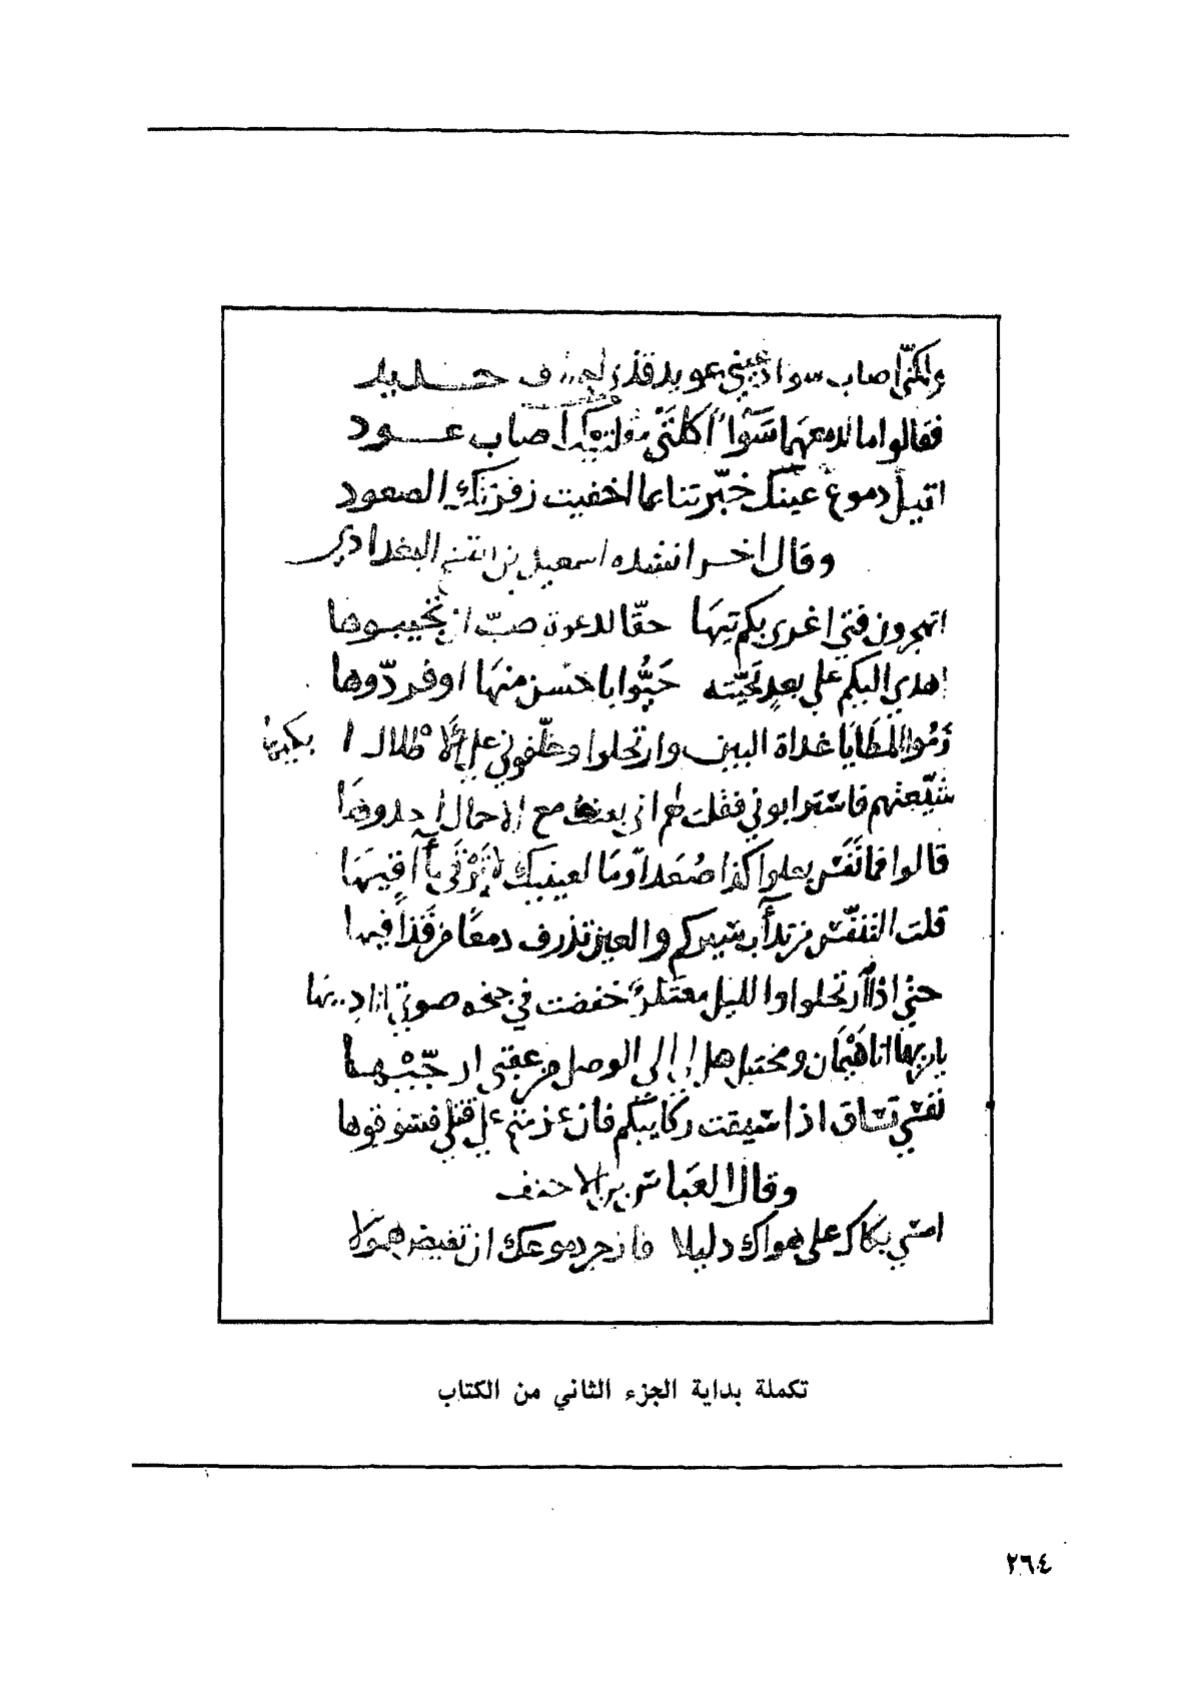 ولكنّي اصاب سواد عيني عويد قذى له طرف حديد
فقالوا ما لدمعهما سَوآءً اكلتَي مقلتيك اصاب عود
اتيل دموع عينك خبّرتنا بما اخفيت زفرتك الصعود
وقال اخر انشده اسمعيل بن القسم البغدادي
اتهجرون فتى اغرى بكم تيها حقّا لدعوة صبّ ان تجيبوها
اهدى اليكم على بعدٍ تحيّته حَيُّوا باحسن منها او فردّوها
زمُّوا المطايا غداة البين وارتحلوا وخلّفوني على الاطلال ابكيها
شيّعتهم فاسترابوني فقلت لهم اني بعثت مع الاحمال احدوها
قالوا فما نَفَس يعلوا كذا صُعَداً وما لعينيك لا تَرْقَى مآقيهَا
قلت التنفّس من تدآب سيركم والعين تذرف دمعًا من قذاً فيها
حتى اذا ارتحلوا والليل معتكر خفضت في جنحه صوتي اناديها
يا من بها انا هَيْمَان ومختبل هل لي الى الوصل من عقبى ارجّيْهَا
نفسي تساق اذا سيقت ركايبكم فان عزمتم على قتلي فسوقوها
وقال العباس بن الاحنف
امسى بكاك على هواك دليلا فازجر دموعك ان تفيض همولا
تكملة بداية الجزء الثاني من الكتاب
٢٦٤